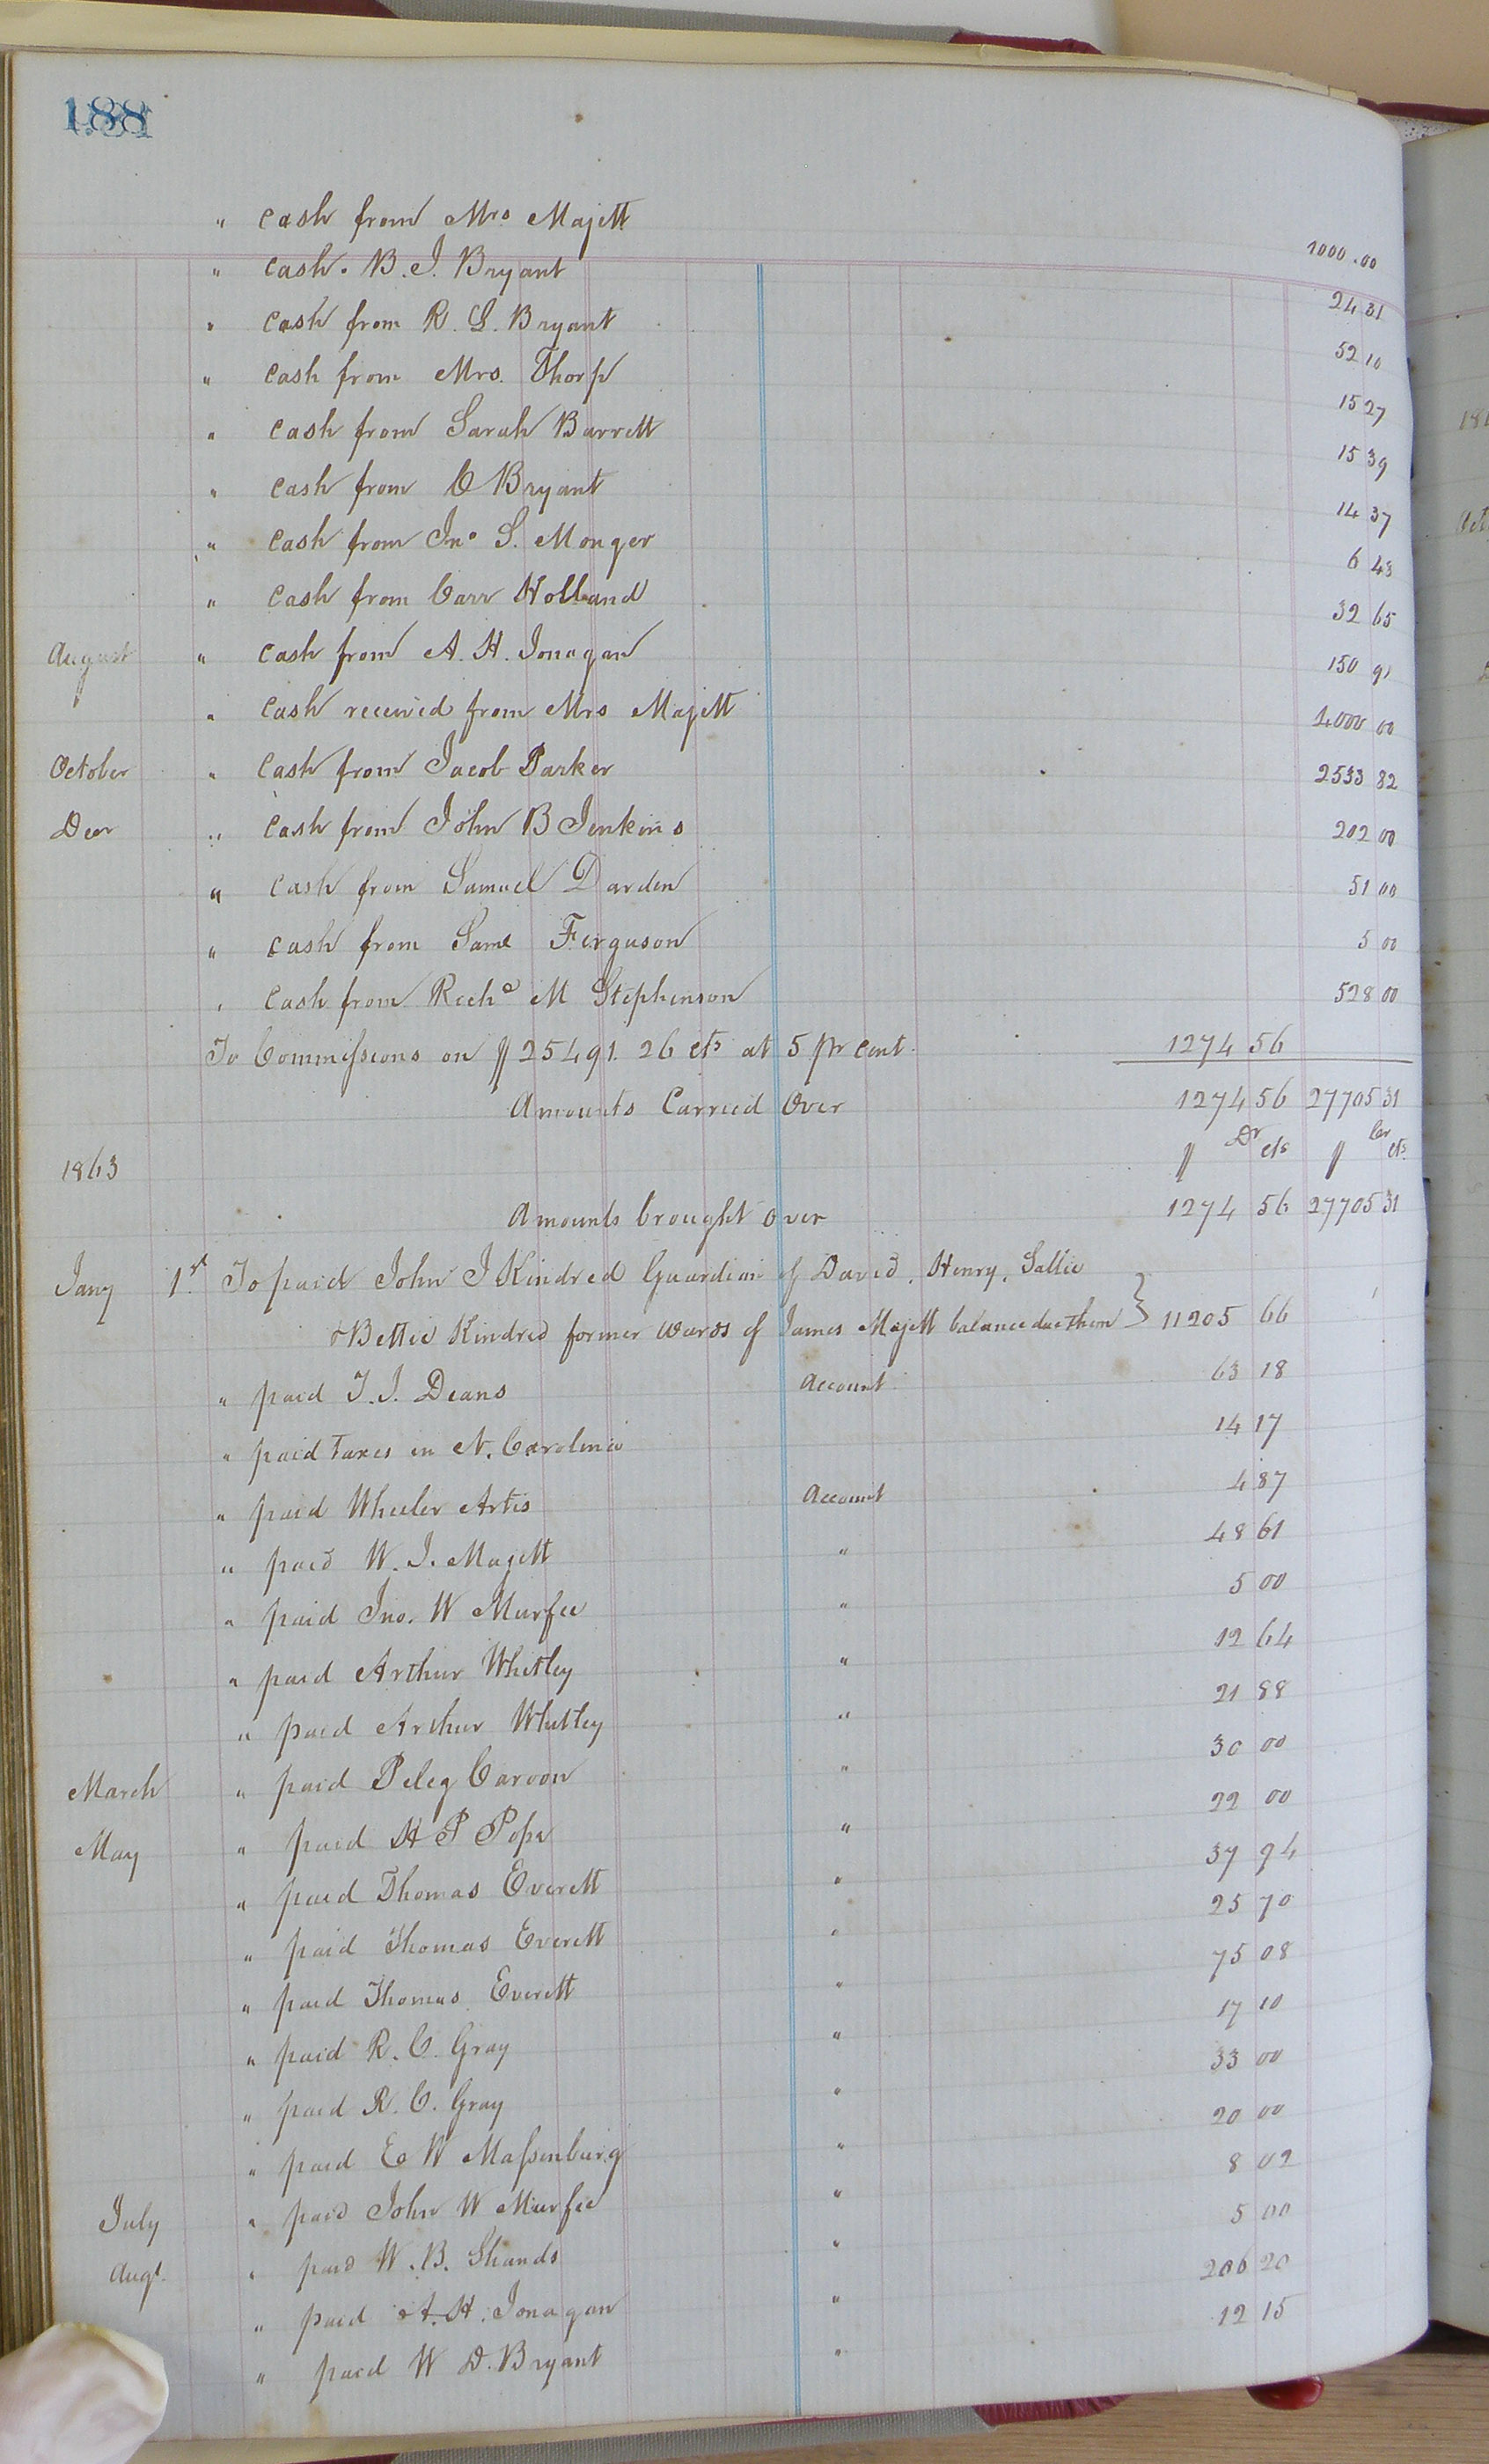 188
" cash from Mrs Majett 1000.00
" cash. B. J. Bryant 24 31
" cash from R. S. Bryant 52 10
" cash from Mrs. Thorp 15 27
" cash from Sarah Barrett 15 39
" cash from C Bryant 14 37
" cash from Jno S. Monger 6 43
" cash from Carr Holland 32 65
August " cash from A. H. Jonagan 150 91
" cash received from Mrs Majett 4000 00
October " cash from Jacob Parker 2533 82
Decr " cash from John B Jenkins 202 00
" cash from Samuel Darden 51 00
" cash from Saml Ferguson 5 00
" cash from Richd M Stephenson 528 00
To Commissions on $25491.26 cts at 5 pr cent. 1274 56
Amounts Carried Over 1274 56 27705 31
1863 $ Dr cts $ Cr cts
Amounts brought over 1274 56 27705 31
Jany 1st To paid John J Kindred Guardian of David, Henry, Sallie
& Bettie Kindred former wards of James Majett balance due them } 11205 66
" paid T. J. Deans Account 63 18
" paid Taxes in N. Carolina 14 17
" paid Wheeler Artis Account 4 87
" paid W. J. Majett " 48 61
" paid Jno. W Murfee " 5 00
" paid Arthur Whitley " 12 64
" paid Arthur Whitley " 21 88
March " paid Peleg Carvon " 30 00
May " paid H P Pope " 22 00
" paid Thomas Everett " 37 94
" paid Thomas Everett " 25 70
" paid Thomas Everett " 75 08
" paid R. C. Gray " 17 10
" paid R. C. Gray " 33 00
" paid E W Massenburg " 20 00
July " paid John W Murfee " 8 02
Augt. " paid W. B. Shands " 5 00
" paid A. H. Jonagan " 206 20
" paid W D. Bryant " 12 15